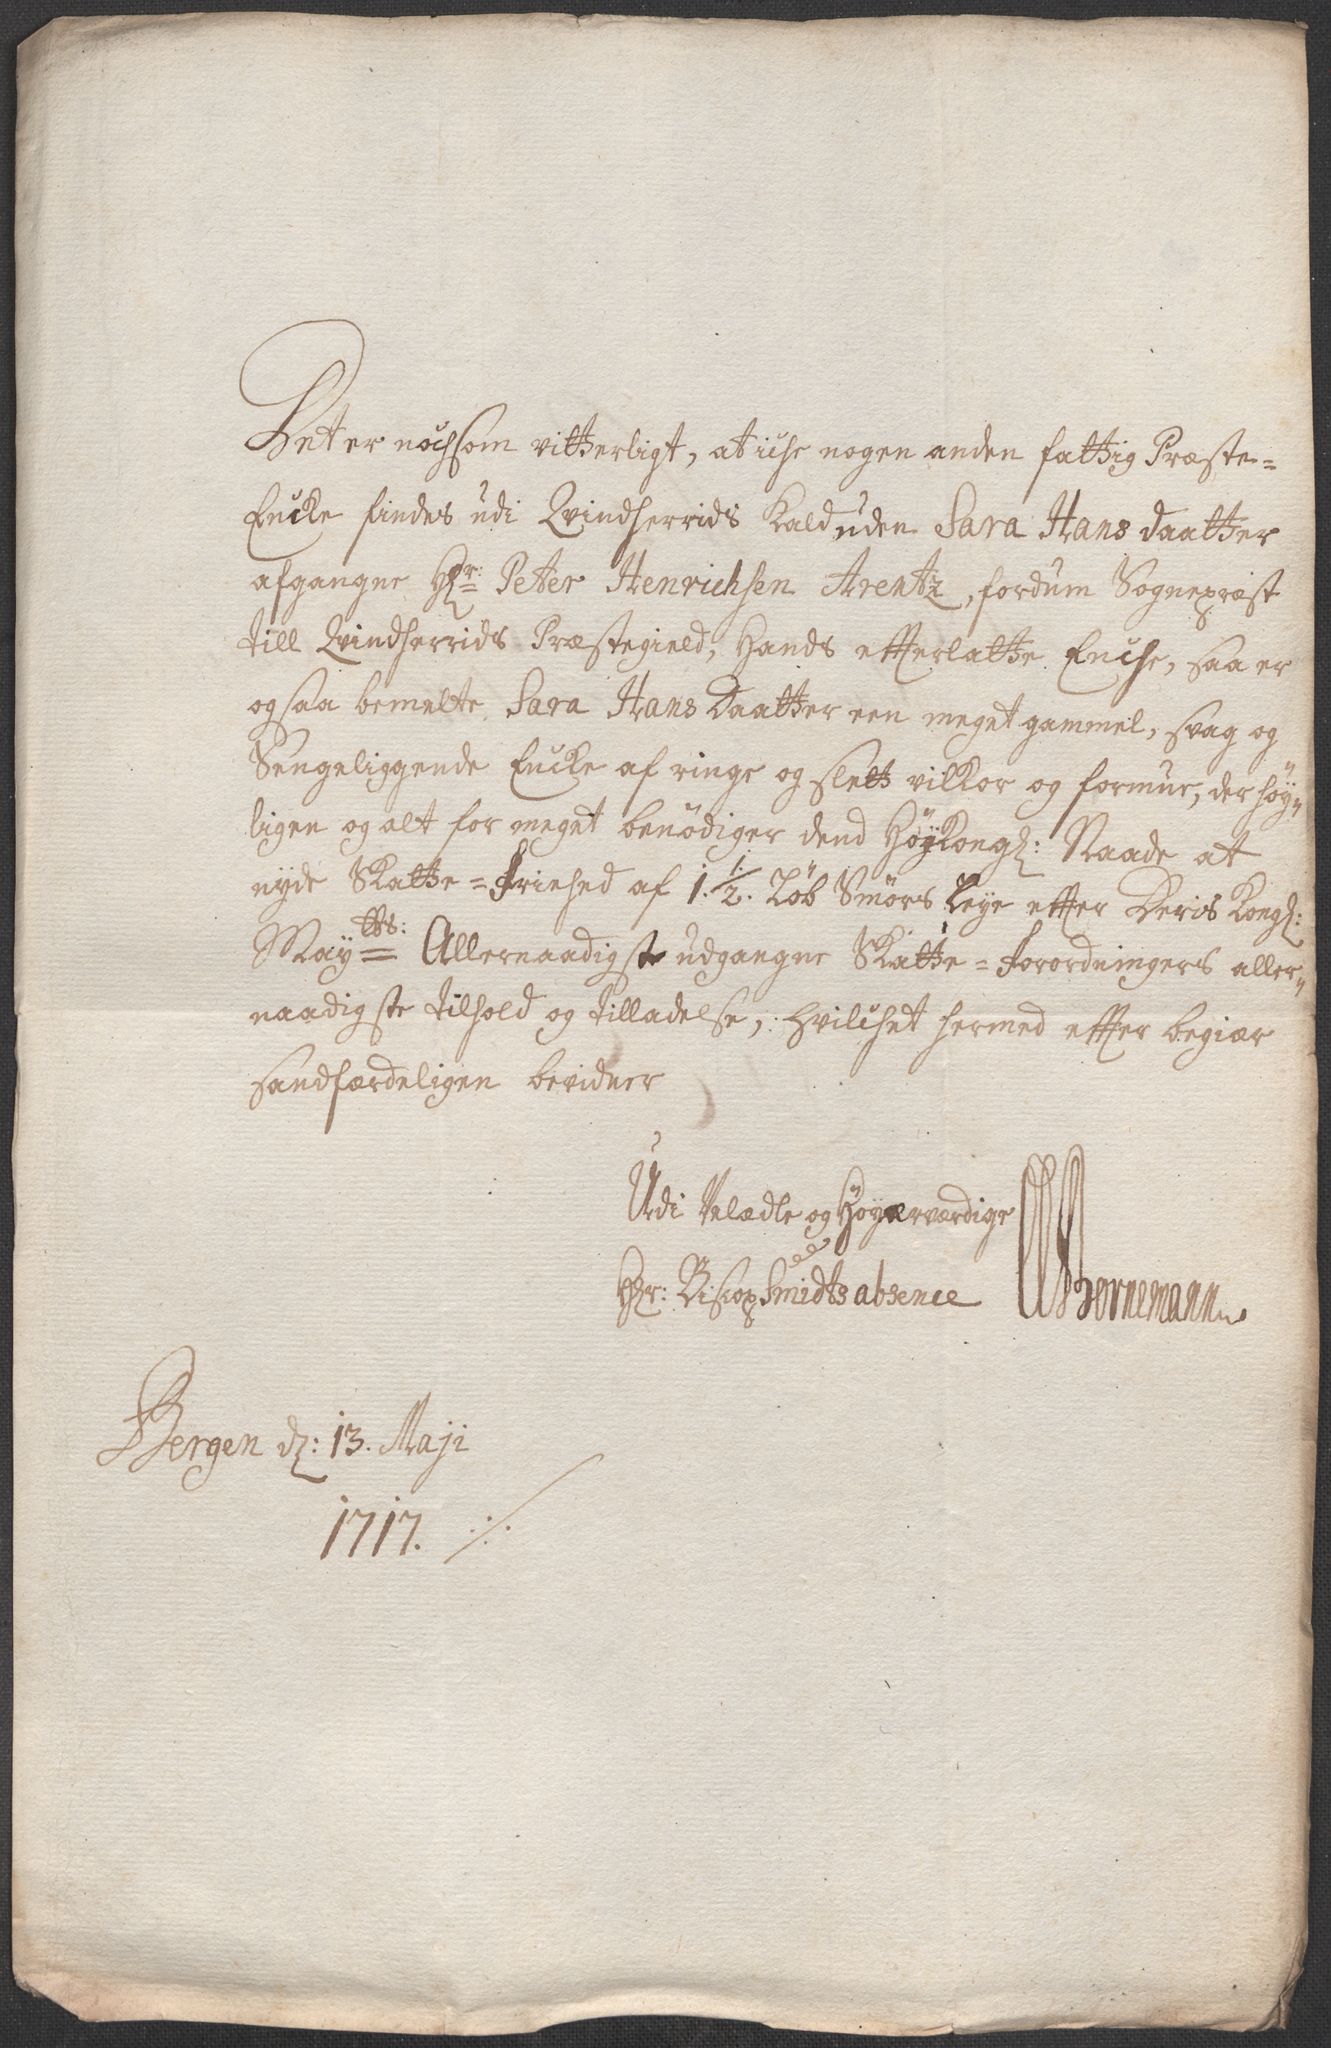 Det er nochsom vitterligt, at iche nogen anden fattig Præste=
Encke findes udi Qvindherrids Kald uden Sara Hans daatter
afgangne Hr: Peter Henrichsen Arentz, fordum Sognepræst
till Qvindherrids Præstegield, Hands effterlatte Enche, saa er
og saa bemelte Sara Hans Daatter een meget gammel, svag og
Sengeliggende Encke af ringe og slett vilkor og formue, der höÿ=
ligen og alt for meget benödiger dend HöÿKongl: Naade at
nyde Skatte=Friehed af 1.1/2. Löb Smörs Leye effter Deris Kongl:
Maytts: Allernaadigste udgangne Skatte=Forordningers aller=
naadigste tilhold og tilladelse, hvilchet hermed effter begiær
sandfærdeligen bevidner
Udi Velædle og Höÿærværdige
Hr: Biscop Smidts absence Bornemann
Bergen d: 13. Maji
1717. ./.